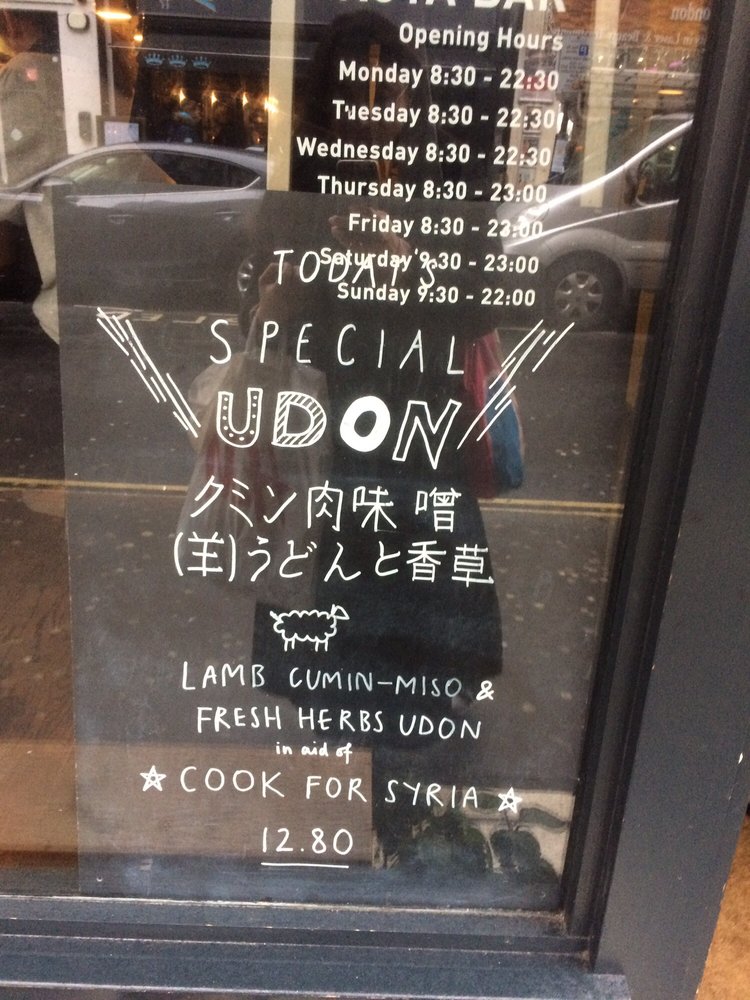 BAR
Opening Hours
Monday 8:30 - 22:30
Tuesday 8:30 - 22:30
Wednesday 8:30 - 22:30
Thursday 8:30 - 23:00
Friday 8:30 - 23:00
Saturday 9:30 - 23:00
Sunday 9:30 - 22:00
TODAY'S
SPECIAL
UDON
クミン肉味噌
(羊)うどんと香草
LAMB CUMIN-MISO &
FRESH HERBS UDON
in aid of
☆ COOK FOR SYRIA ☆
12.80